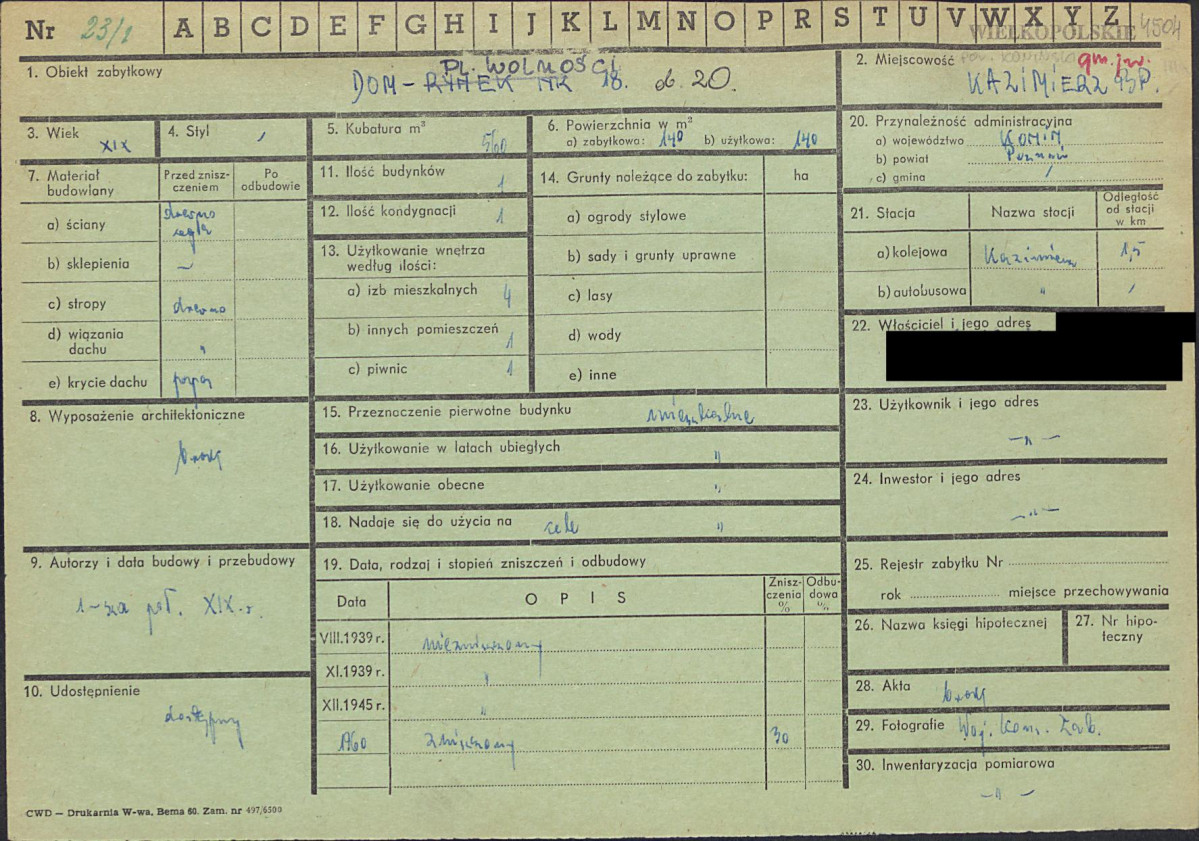 Nr 23/1 A B C D E F G H I J K L M N O P R S T U V W X Y Z 4504
WIELKOPOLSKIE
1. Obiekt zabytkowy
PL. WOLNOŚCI
DOM – RYNEK NR 18. ob. 20.
2. Miejscowość
gm. jw.
KAZIMIERZ BP.
3. Wiek
XIX
4. Styl
5. Kubatura m³
560
6. Powierzchnia w m²
a) zabytkowa: 140 b) użytkowa: 140
7. Materiał budowlany
Przed zniszczeniem
Po odbudowie
a) ściany
drewno
cegła
b) sklepienia –
c) stropy drewno
d) wiązania dachu "
e) krycie dachu papa
8. Wyposażenie architektoniczne
brak
9. Autorzy i data budowy i przebudowy
1-sza poł. XIX w.
10. Udostępnienie
dostępny
11. Ilość budynków 1
12. Ilość kondygnacji 1
13. Użytkowanie wnętrza według ilości:
a) izb mieszkalnych 4
b) innych pomieszczeń 1
c) piwnic 1
14. Grunty należące do zabytku: ha
a) ogrody stylowe
b) sady i grunty uprawne
c) lasy
d) wody
e) inne
15. Przeznaczenie pierwotne budynku mieszkalne
16. Użytkowanie w latach ubiegłych "
17. Użytkowanie obecne "
18. Nadaje się do użycia na cele "
19. Data, rodzaj i stopień zniszczeń i odbudowy
Data OPIS Zniszczenia % Odbudowa %
VIII.1939 r. niezniszczony
XI.1939 r. "
XII.1945 r. "
1960 zniszczony 30
20. Przynależność administracyjna
a) województwo KONIN
b) powiat Poznań
c) gmina /
21. Stacja Nazwa stacji Odległość od stacji w km
a) kolejowa Kazimierz 1,5
b) autobusowa " /
22. Właściciel i jego adres
23. Użytkownik i jego adres
–"–
24. Inwestor i jego adres
–"–
25. Rejestr zabytku Nr
rok miejsce przechowywania
26. Nazwa księgi hipotecznej
27. Nr hipoteczny
28. Akta
brak
29. Fotografie Woj. Kons. Zab.
30. Inwentaryzacja pomiarowa
–"–
CWD — Drukarnia W-wa, Bema 60. Zam. nr 497/6500